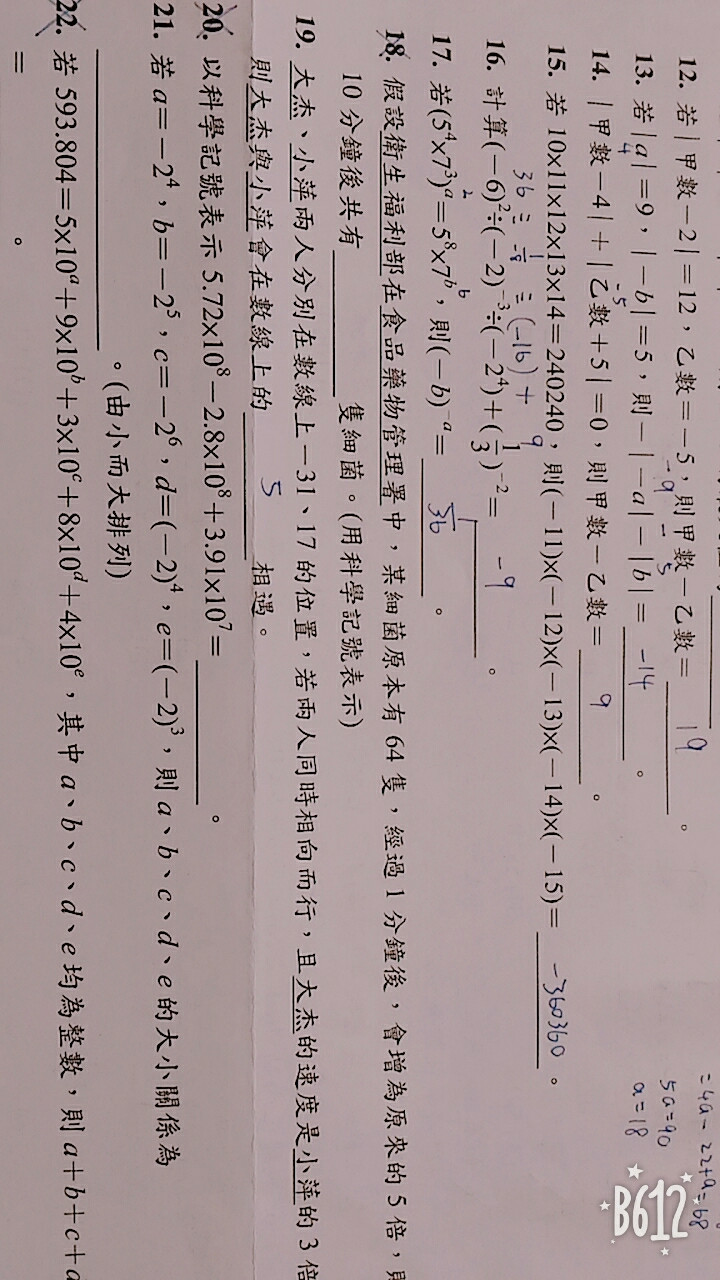 12. 若|甲數－2|=12，乙數=－5，則甲數－乙數= 19 。
13. 若|a|=9，|－b|=5，則－|－a|－|b|= －14 。
14. |甲數－4|+|乙數+5|=0，則甲數－乙數= 9 。
15. 若 10x11x12x13x14=240240，則(－11)x(－12)x(－13)x(－14)x(－15)= －360360 。
16. 計算(－6)²÷(－2)⁻³÷(－2⁴)+(1/3)⁻²= －9 。
17. 若(5⁴x7³)ᵃ=5⁸x7ᵇ，則(－b)⁻ᵃ= 1/36 。
18. 假設衛生福利部在食品藥物管理署中，某細菌原本有 64 隻，經過 1 分鐘後，會增為原來的 5 倍，則
10 分鐘後共有 隻細菌。(用科學記號表示)
19. 大杰、小萍兩人分別在數線上－31、17 的位置，若兩人同時相向而行，且大杰的速度是小萍的 3 倍
則大杰與小萍會在數線上的 5 相遇。
20. 以科學記號表示 5.72x10⁸－2.8x10⁸+3.91x10⁷= 。
21. 若 a=－2⁴，b=－2⁵，c=－2⁶，d=(－2)⁴，e=(－2)³，則 a、b、c、d、e 的大小關係為
。(由小而大排列)
22. 若 593.804=5x10ᵃ+9x10ᵇ+3x10ᶜ+8x10ᵈ+4x10ᵉ，其中 a、b、c、d、e 均為整數，則 a+b+c+d
= 。
=4a－22+a=68
5a=90
a=18
B612